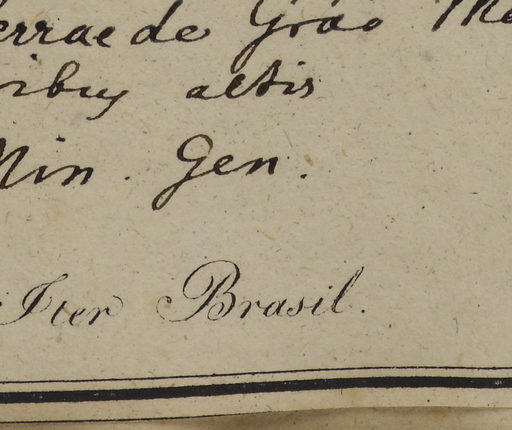 errae de Grão Mo
ribus altis
Min. Gen.
Iter Brasil.